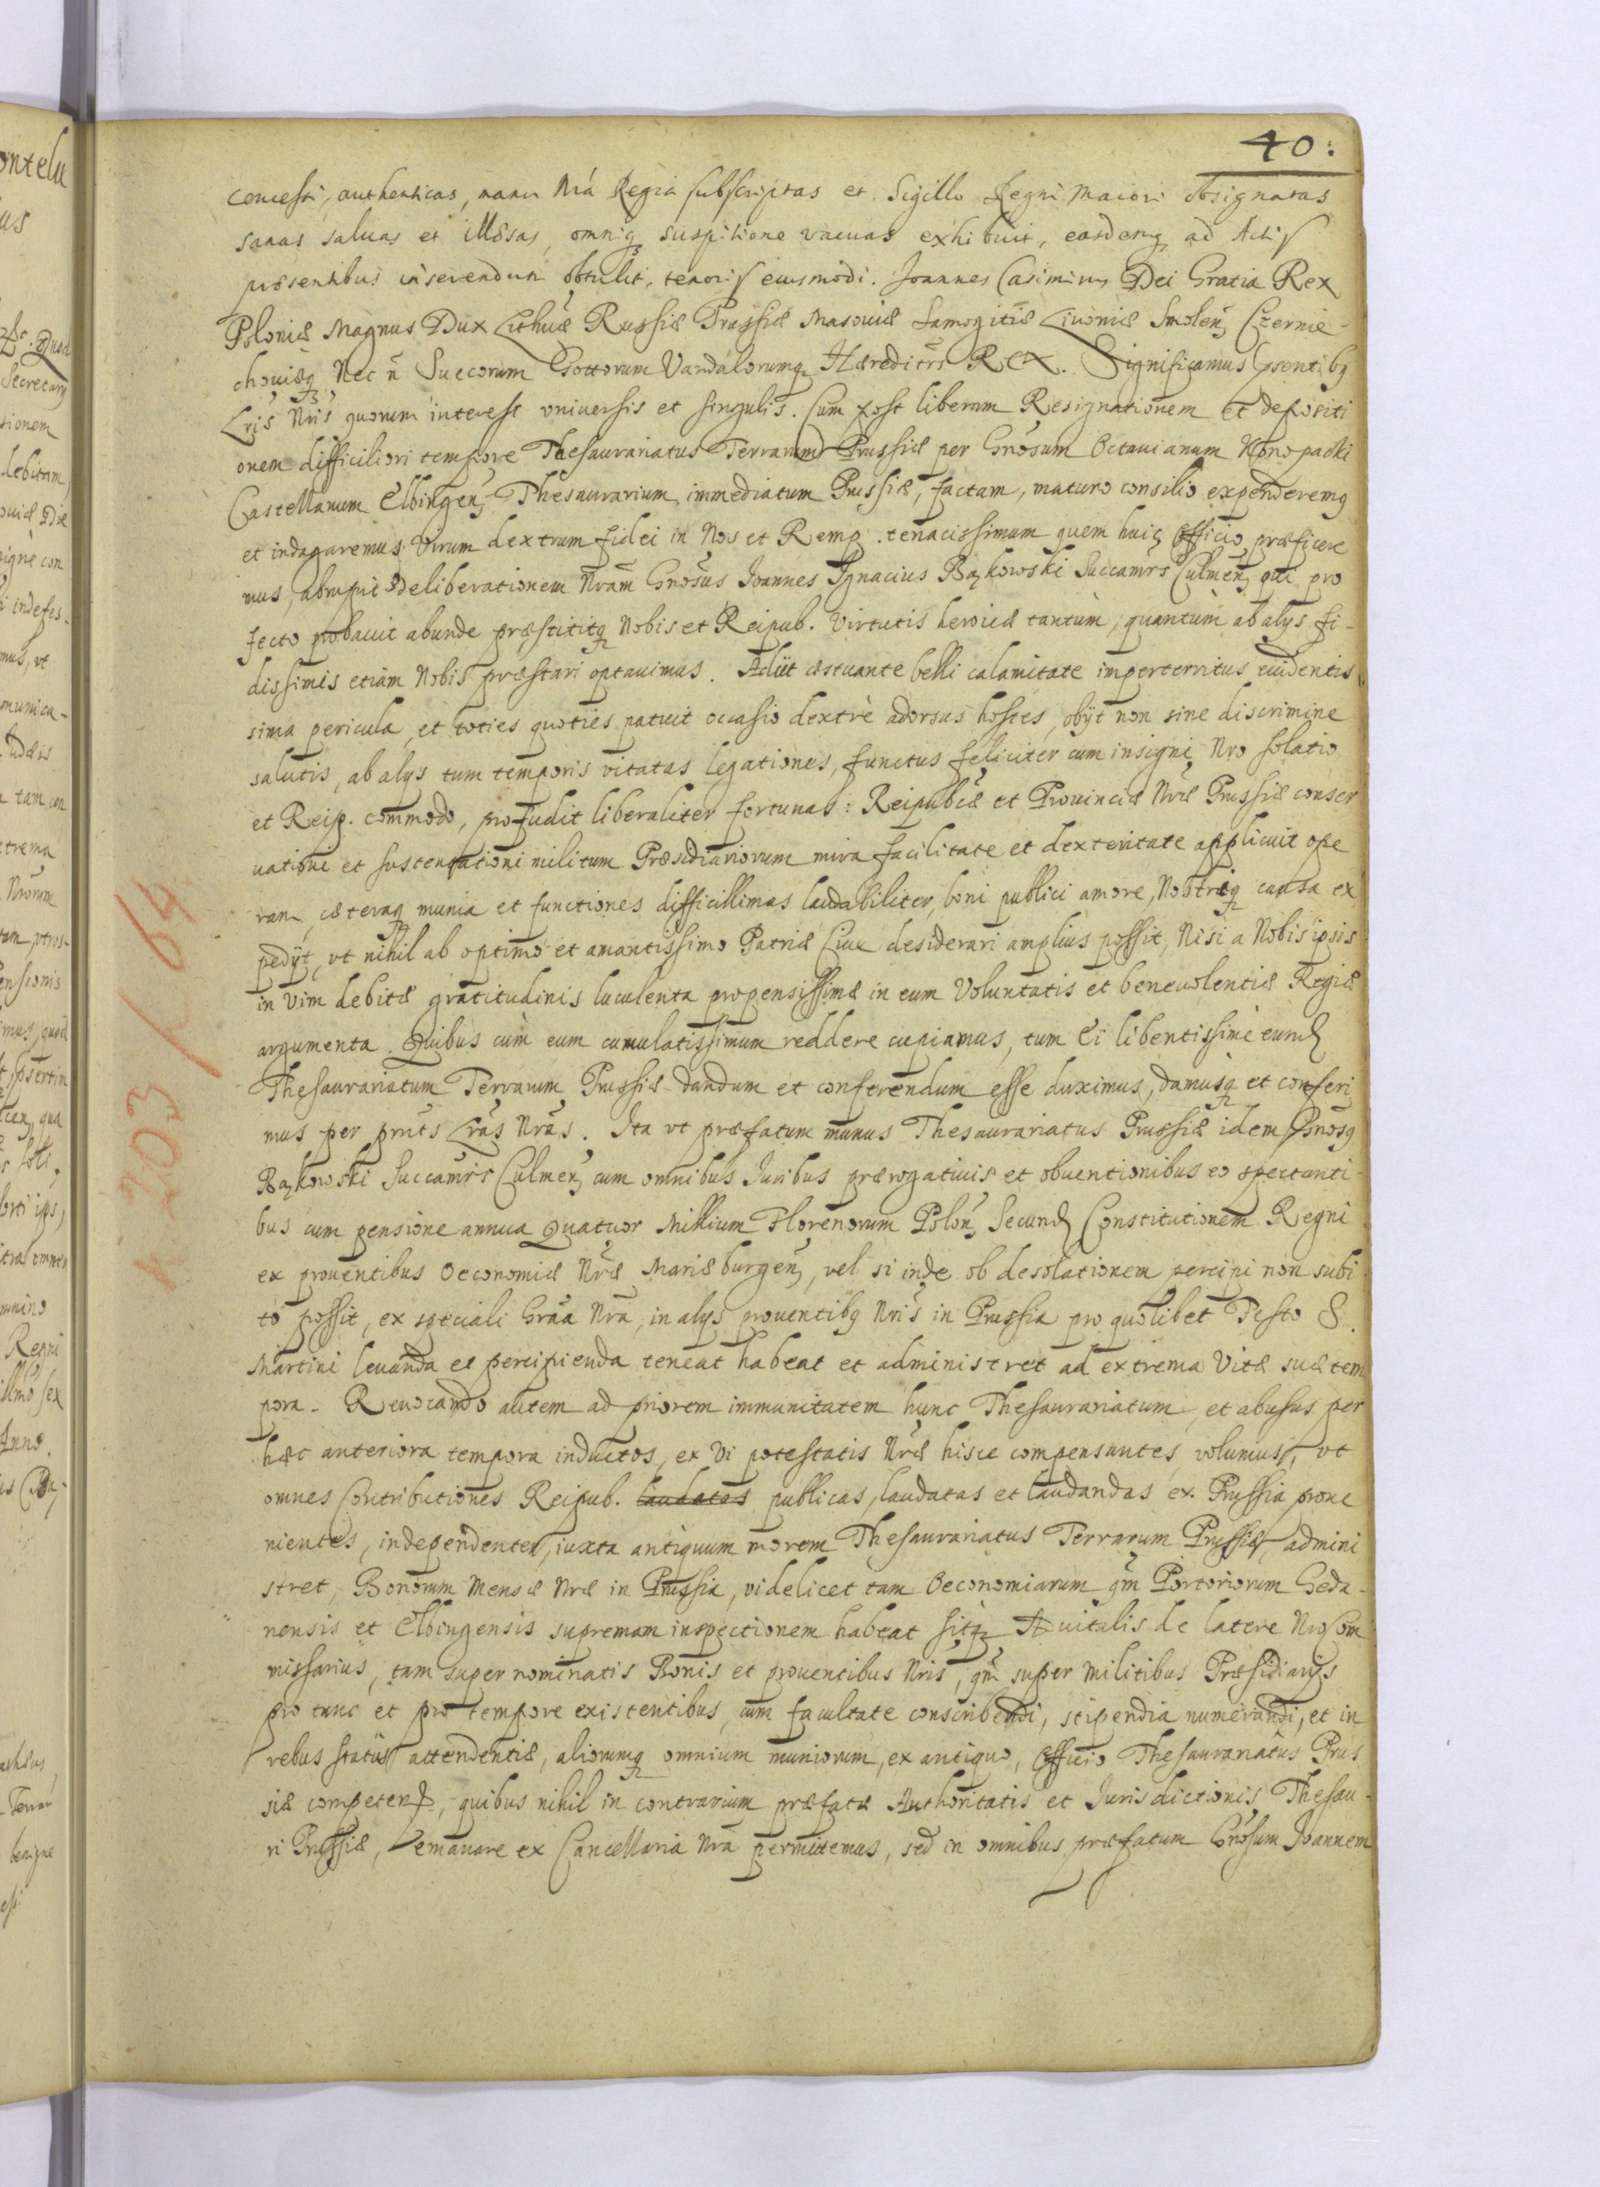 40:
concessi, authenticas, manu Nrá Regia subscriptas et Sigillo Regni Maiori obsignatas
sanas saluas et illæsas, omniq suspitione vacuas exhibuit, easdemq ad Actis
præsentibus inserendum obtulit, tenoris eiusmodi. Joannes Casimirus Dei Gratia Rex
Poloniæ Magnus Dux Lithuæ Russiæ Prussiæ Masouiæ Samogitiæ Liuoniæ Smoleñ, Czernie-
chouiæq Nec ñ Suecorum Gottorum Vandalorumq Hæreditrs Rex. Significamus Psentibq
Lris Nris quorum interest vniuersis et singulis. Cum post liberam Resignationem et depositi
onem difficiliori tempore Thesaurariatus Terrarum Prussiæ per Gnosum Octauianum Konopacki
Castellanum Elbingeñ, Thesaurarium immediatum Prussiæ, factam, maturo consilio expenderemq
et indagaremus Virum dextrum fidei in Nos et Remp. tenacissimum quem huic Officio præficere
mus, abrupit deliberationem Nram Gnosus Joannes Ignacius Bąkowski Succamrs Culmeñ, qui pro
fecto probauit abunde præstititq Nobis et Reipub. Virtutis heroicæ tantùm, quantùm ab alys fi-
dissimis etiam Nobis præstari optauimus. Adijt æstuante belli calamitate imperterritus euidentis
sima pericula, et toties quoties patuit occasio dextrè adorsus hostes, obyt non sine discrimine
salutis, ab alys tum temporis vitatas legationes, functus feliciter cum insigni Nro solatio
et Reip. commodo, profudit liberaliter fortunas: Reipubcæ et Prouinciæ Nræ Prussiæ conser
uationi et sustentationi militum Præsidiariorum mira facilitate et dexteritate applicuit ope
ram, cæteraq munia et functiones difficillimas laudabiliter, boni publici amore, Nostriq causa ex
pedyt, vt nihil ab optimo et amantissimo Patriæ Ciue desiderari amplius possit, Nisi a Nobis ipsis
in vim debitæ gratitudinis luculenta propensissimæ in eum Voluntatis et beneuolentiæ Regiæ
argumenta. Quibus cùm eum cumulatissimum reddere cupiamus, tum Ei libentissimè eund
Thesaurariatum Terrarum Prussiæ dandum et conferendum esse duximus, damusq et conferi
mus per pnts Lras Nras. Ita vt præfatum munus Thesaurariatus Prussiæ idem Gnosq
Bąkowski Succamrs Culmeñ, cum omnibus Iuribus prærogatiuis et obuentionibus eo spectanti-
bus cum pensione annua Quatuor Millium Florenorum Poloñ, Secund Constitutionem Regni
ex prouentibus Oeconomiæ Nræ Mariæburgeñ, vel si inde ob desolationem percipi non subi
to possit, ex speciali Graa Nra, in alys prouentibq Nris in Prussia pro quolibet Festo S.
Martini leuanda et percipienda teneat habeat et administret ad extrema Vitæ suæ tem
pora. Reuocando autem ad priorem immunitatem hunc Thesaurariatum, et abusus per
hæc anteriora tempora inductos, ex Vi potestatis Nræ hisce compensantes, volumus, vt
omnes Contributiones Reipub. laudatas publicas, laudatas et laudandas ex Prussia proue
nientes, independenter, iuxta antiquum morem Thesaurariatus Terrarum Prussiæ, admini
stret, Bonorum Mensæ Nræ in Prussia, videlicet tam Oeconomiarum qm Portoriorum Geda-
nensis et Elbingensis supremam inspectionem habeat sitq Aduitalis de latere Nro Com
missarius, tam super nominatis Bonis et prouentibus Nris, qm super Militibus Præsidiarys
pro tunc et pro tempore existentibus, cum facultate conscribendi, stipendia numerandi, et in
rebus status attendentiæ, aliorumq omnium muniorum, ex antiquo, Officio Thesaurariatus Prus
siæ competend, quibus nihil in contrarium præfatæ Authoritatis et Jurisdictionis Thesau-
ri Prussiæ, emanare ex Cancellaria Nra permittemus, sed in omnibus præfatum Gnosum Joannem
303/64